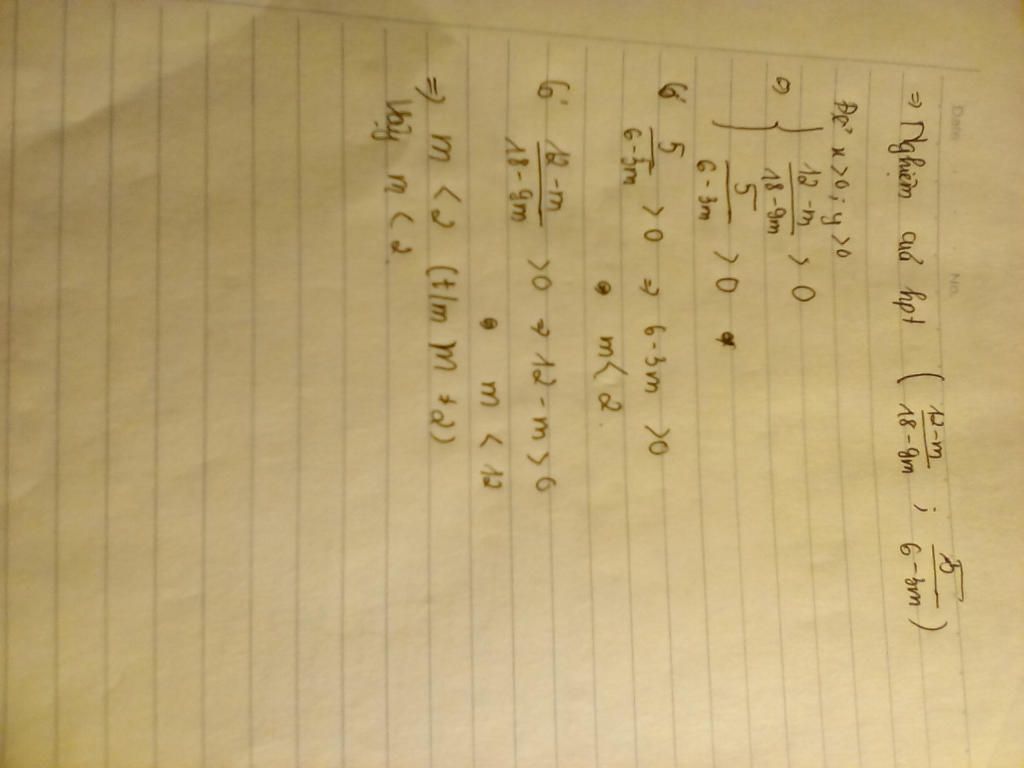 Date No.
⇒ Nghiệm của hpt ( 12-m / 18-9m ; 5 / 6-3m )
Để x>0; y>0
⇔ { 12-m / 18-9m > 0
5 / 6-3m > 0
Có 5 / 6-3m > 0 ⇒ 6-3m >0
m<2.
Có 12-m / 18-9m >0 ⇒ 12-m>0
m < 12
⇒ m <2 (t/m m ≠2)
Vậy m<2.